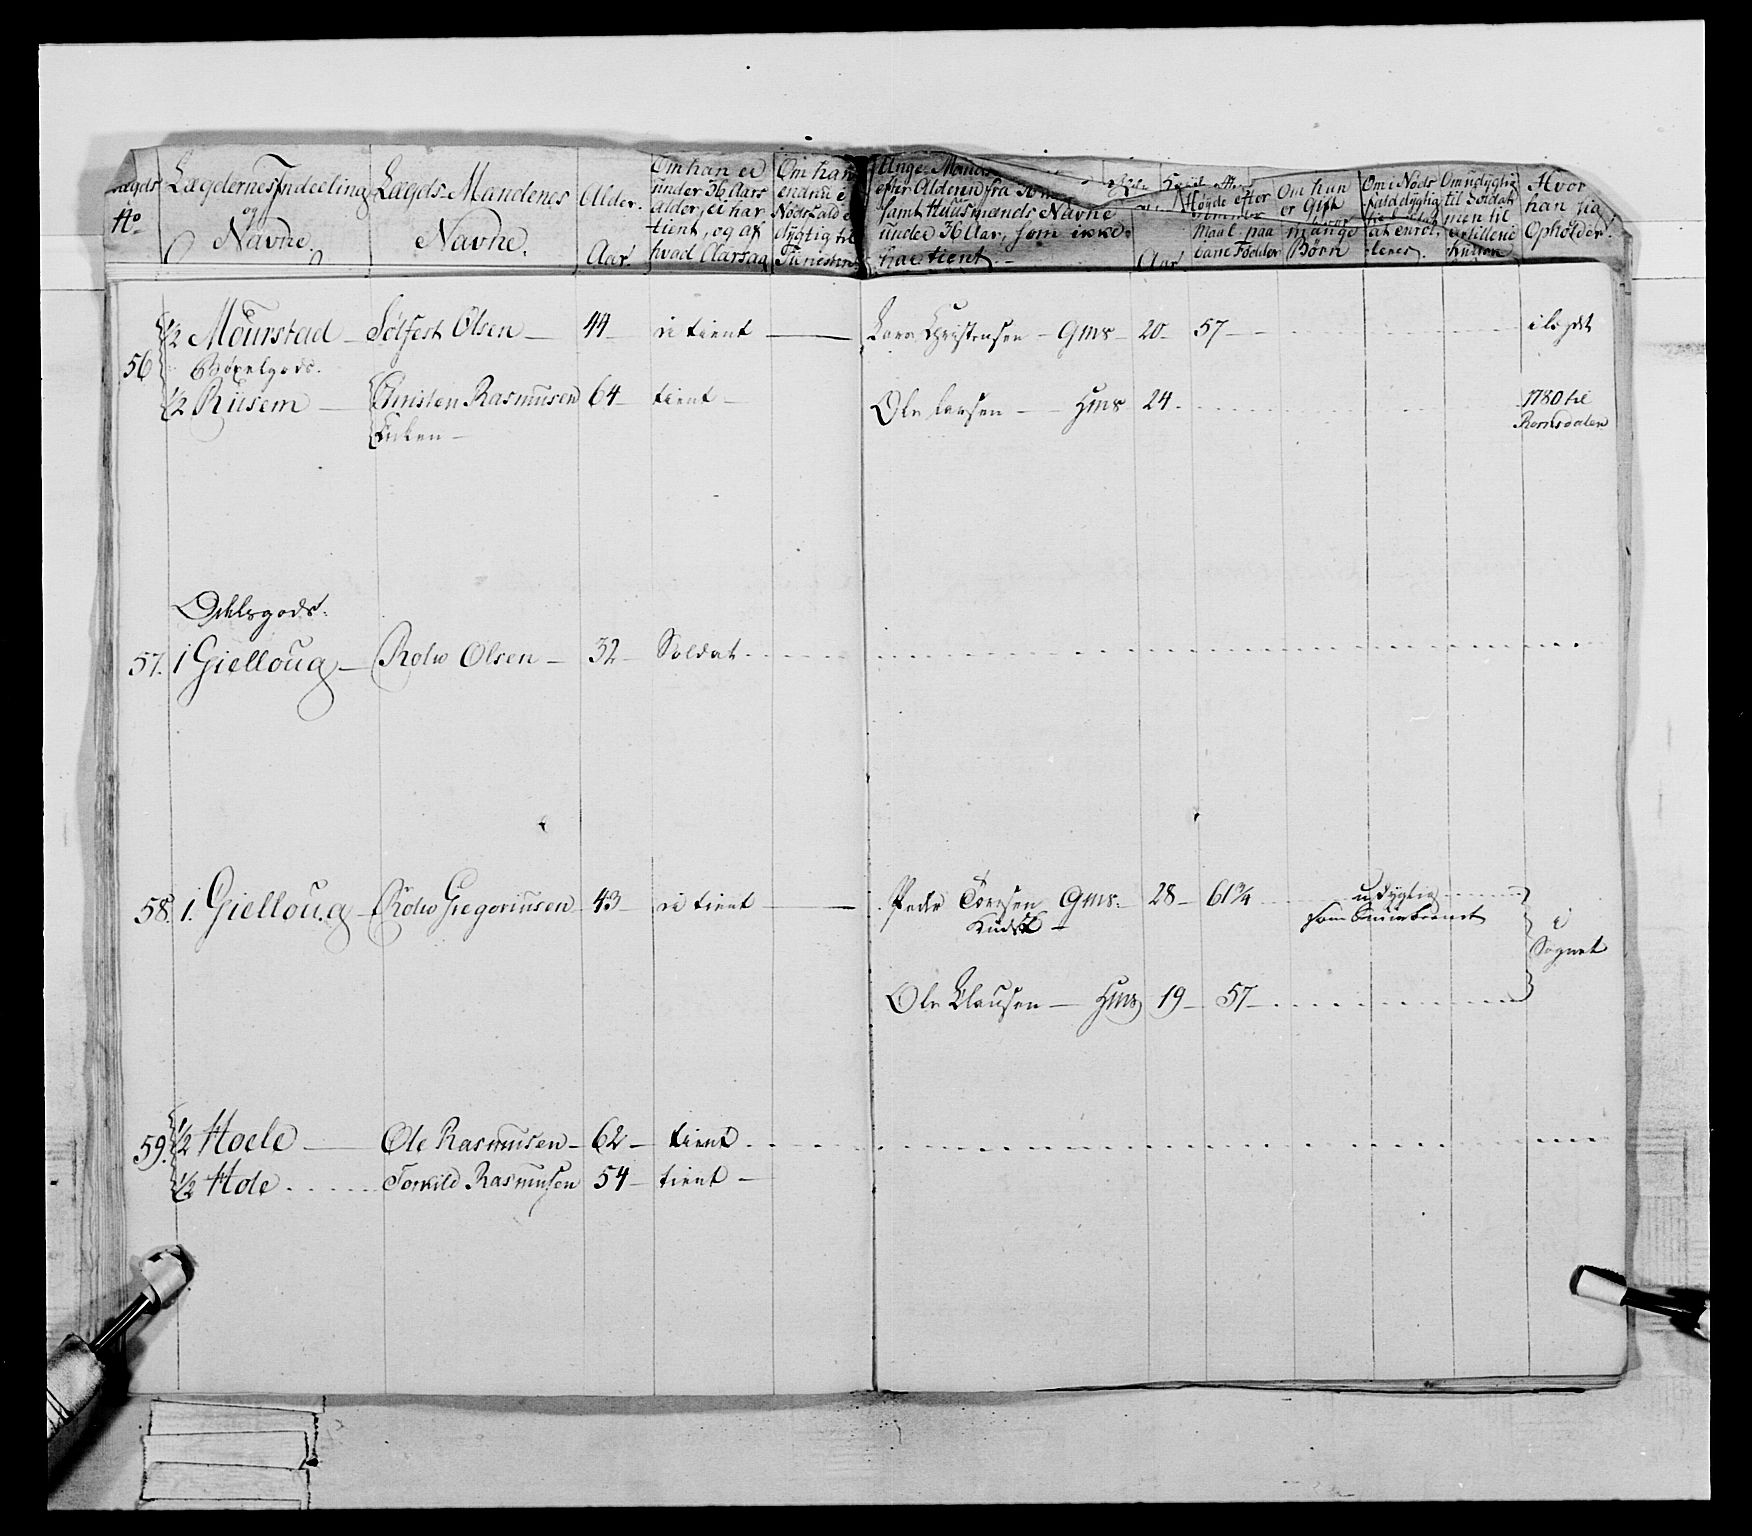 Lægds No
Lægdernes Indeeling og Navne.
Lægds-Mandenes Navne.
Alder. Aar.
Om han er under 36 Aars alder, ei har tient, og af hvad Aarsag
Om han endnu e
dygtig til Tienesten
Unge Mands
efter Alderen fra
samt Huusmænds Navne
under 36 Aar, som ikke
har tient.
Aar
Høyde efter
maal paa
bare Fødder
Om han er Gift
mange Børn
Om i Nøds
fald dygtig
at enrol-
leres.
Om udygtig
til Soldat
men til
Artillerie
Hvor han sig Opholder.
56
1/2 Mourstad - Sølfest Olsen - 44 - ei tient - Lars Christensen - Gms - 20 - 57 -
Bøxelgods.
1/2 Riisem - Christen Rasmusen 64 - tient - Ole Larsen - Hms 24 - 1780 til
Enken - Romsdalen
Odelsgods.
57. 1 Gielloug - Rolw Olsen - 32 - Soldat
58. 1. Gielloug - Rolw Gregoriusen 43 - ei tient - Peder Toresen Gms. 28 - 61 3/4 udygtig
som
i
Sognet
Ole Clausen - Hms 19 - 57 -
59. 1/2 Hoele - Ole Rasmusen - 62 - tient
1/2 Hole - Torkild Rasmusen 54 - tient -